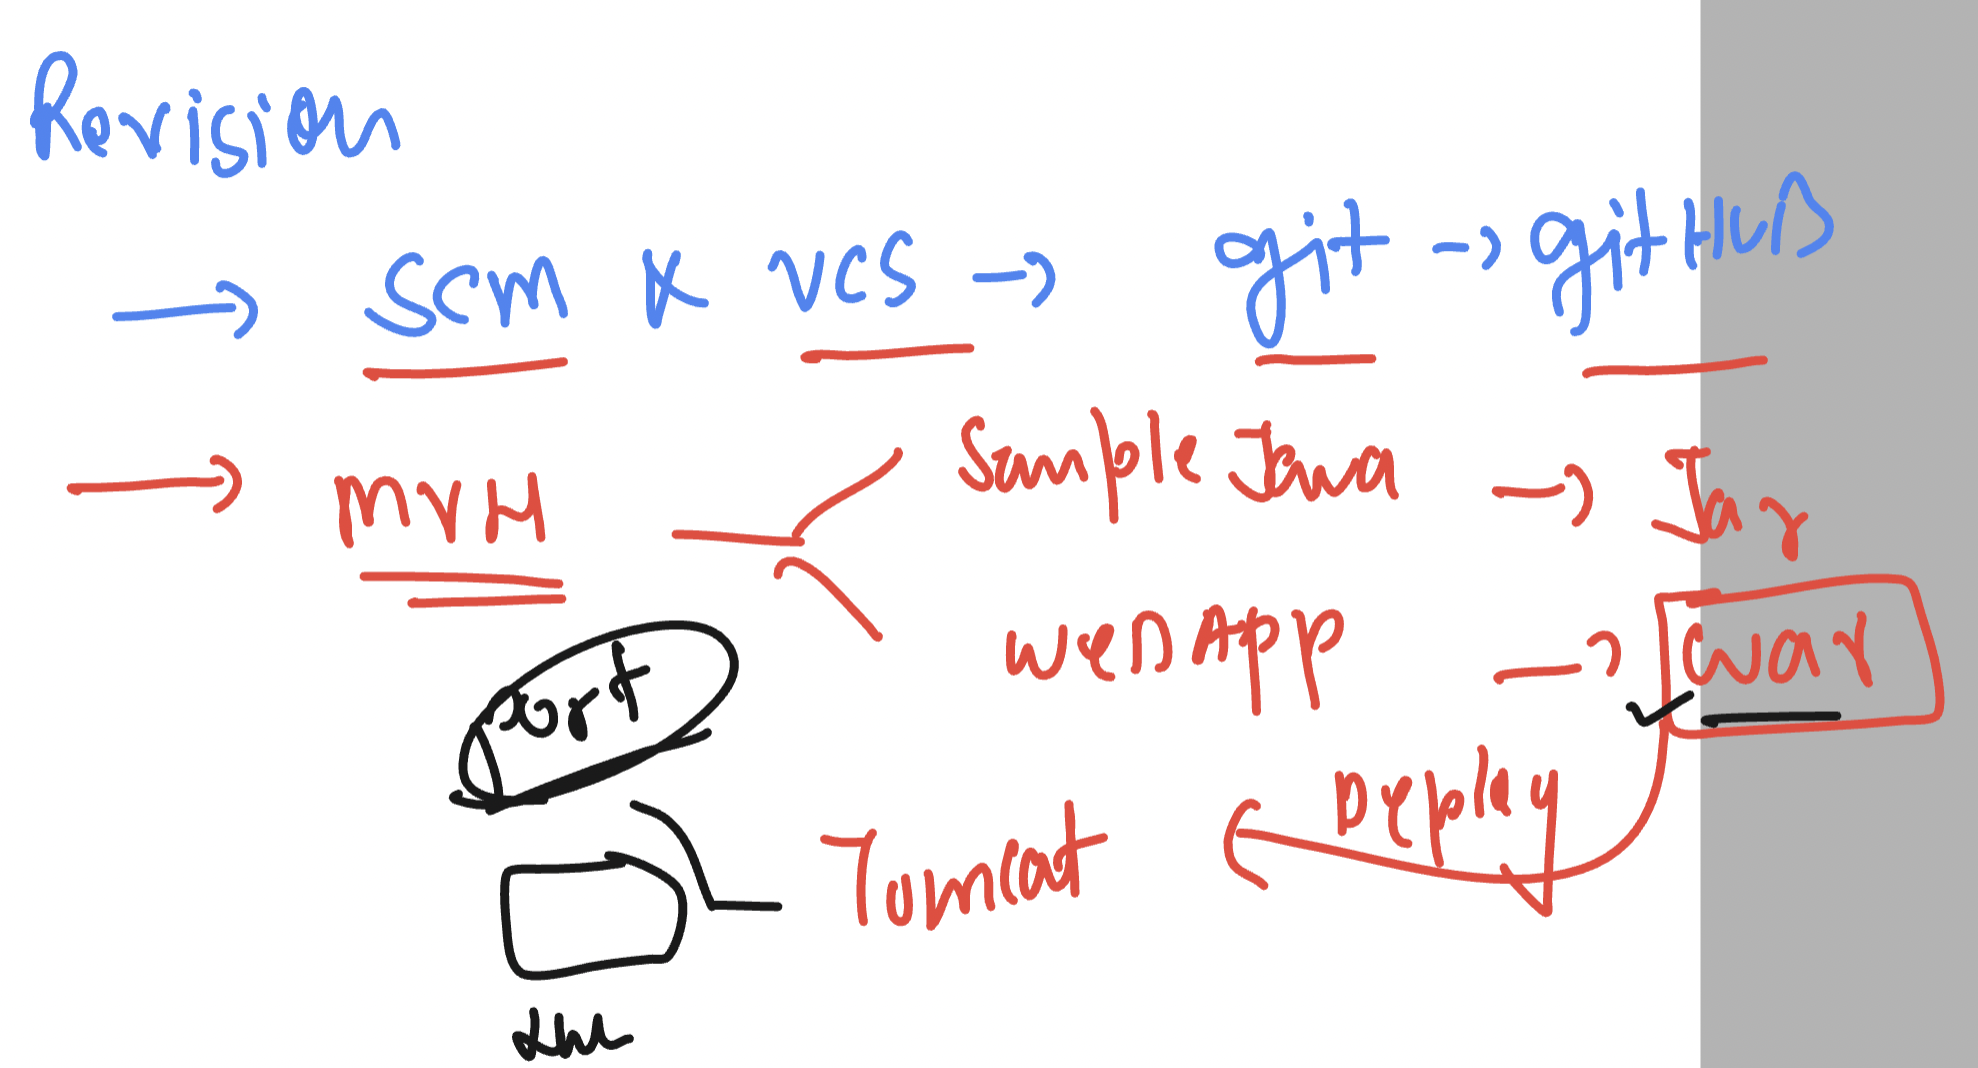 Revision
→ SCM & VCS → git → gitHub
→ MVN
Sample Java → Jar
Web App → war
Port
Deploy
Tomcat